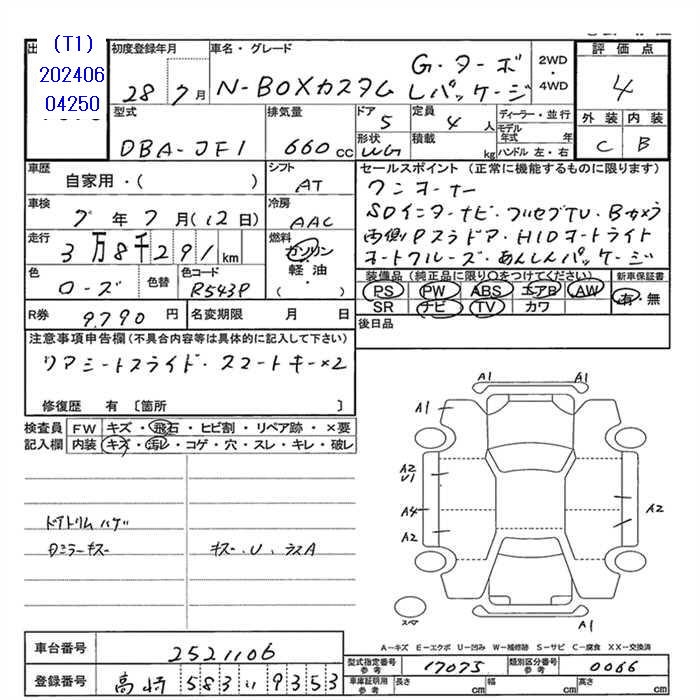 (T1)
202406
04250
初度登録年月
車名・グレード
28 7月
N-BOXカスタム
G・ターボ
Lパッケージ
2WD
・
4WD
評価点
4
外装 内装
C B
型式
DBA-JF1
排気量
660cc
ドア
5
定員
4人
形状
WG
積載
kg
ディーラー・並行
モデル年式 年
ハンドル 左・右
車歴
自家用・( )
シフト
AT
車検
7年7月(12日)
冷房
AAC
走行
3万8千291km
燃料
ガソリン
・
軽油
( )
色
ローズ
色替
色コード
R543P
R券
9,790円
名変期限 月 日
セールスポイント(正常に機能するものに限ります)
ワンオーナー
SDインターナビ・フルセグTV・Bカメラ
両側Pスラドア・HIDオートライト
オートクルーズ・あんしんパッケージ
装備品(純正品に限り〇をつけてください)
新車保証書
PS PW ABS エアB AW
SR ナビ TV カワ
有・無
後日品
注意事項申告欄(不具合内容等は具体的に記入して下さい)
リアシートスライド・スマートキー×2
修復歴 有〔箇所 〕
検査員
記入欄
FW キズ・飛石・ヒビ割・リペア跡・×要
内装 キズ・汚レ・コゲ・穴・スレ・キレ・破レ
ドアトリムハゲ
Dミラーキズ
キズ・U、ラスA
A1
A1
A1
A2
U1
A4
A2
A2
A1
スペア
A-キズ E-エクボ U-凹み W-補修跡 S-サビ C-腐食 XX-交換済
車台番号
2521106
登録番号
高崎 583 い 9353
型式指定番号
参考
17075
類別区分番号
参考
0066
車庫証明用
参考
長さ cm 幅 cm 高さ cm